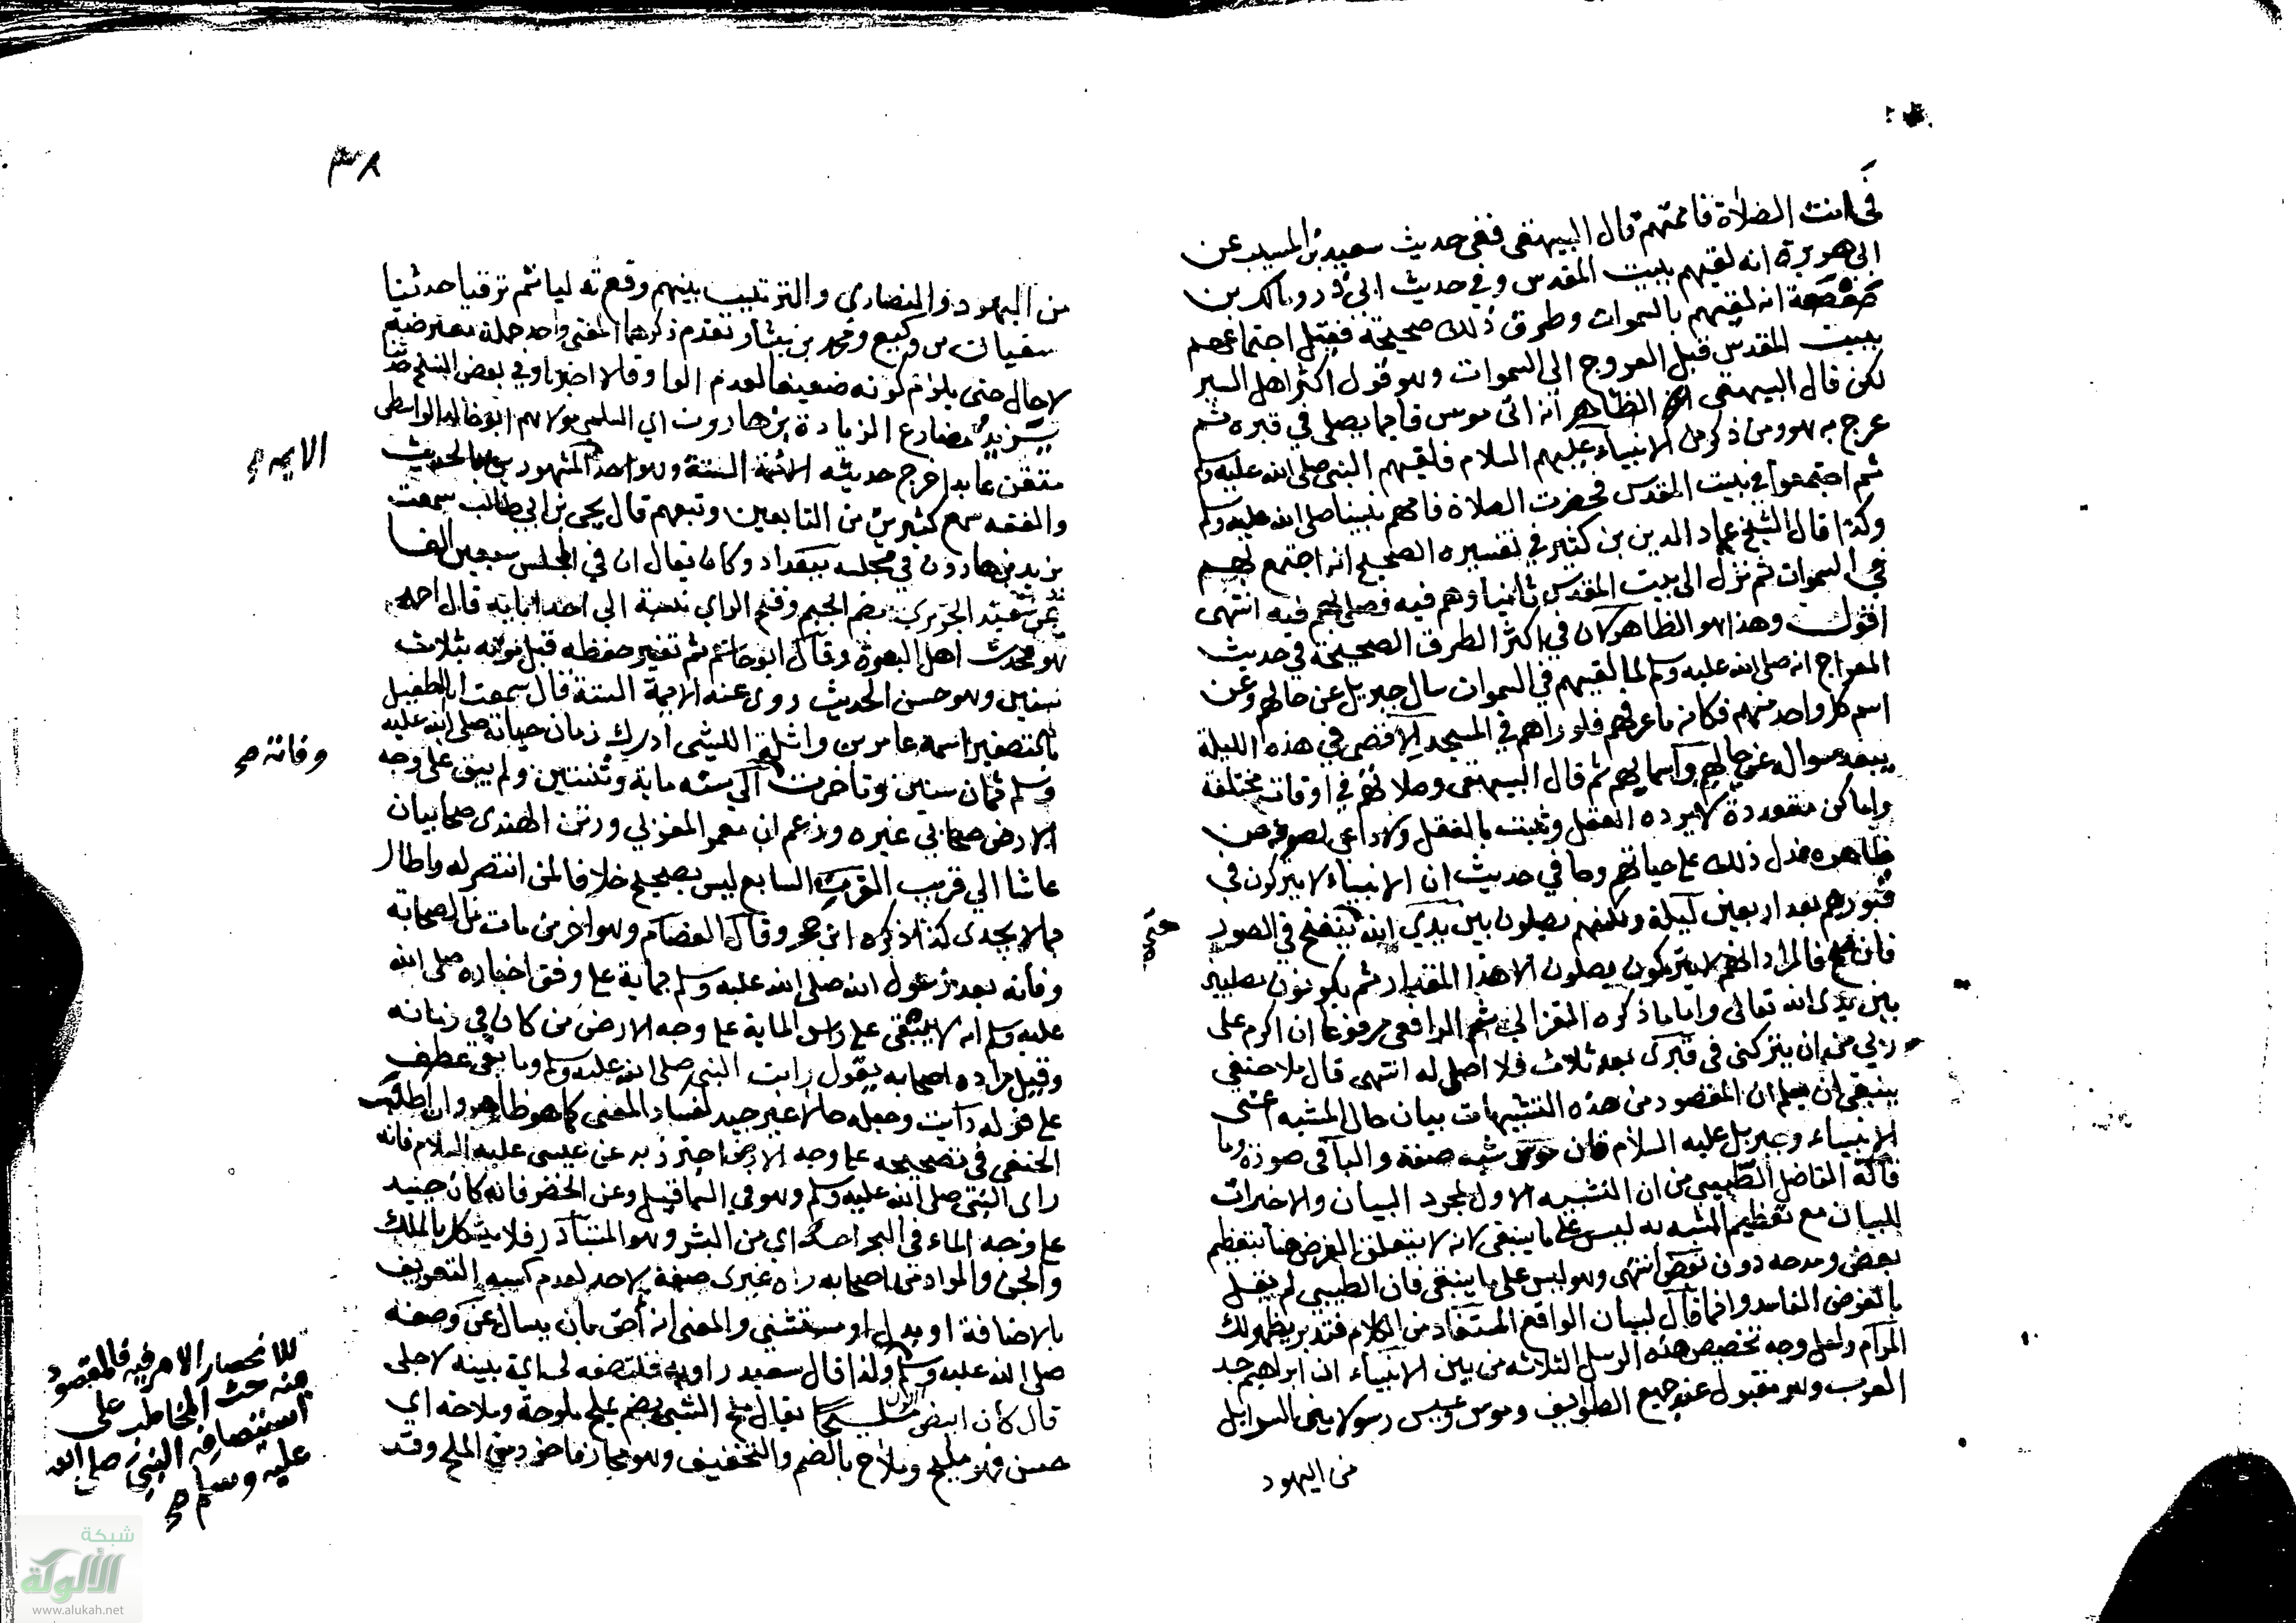 فحانت الصلاة فاممتهم قال البيهقي ففي حديث سعيد بن المسيب عن
ابي هريرة انه لقيهم ببيت المقدس وفي حديث ابي ذر ومالك بن
صعصعة انه لقيهم بالسموات وطرق ذلك صحيحة فقيل اجتماعهم
ببيت المقدس قبل العروج الى السموات وهو قول اكثر اهل السير
لكن قال البيهقي الظاهر انه اتى موسى قايما يصلي في قبره ثم
عرج به هو ومن ذكر من الانبياء عليهم السلام فلقيهم النبي صلى الله عليه وسلم
ثم اجتمعوا في بيت المقدس فحضرت الصلاة فامهم نبينا صلى الله عليه وسلم
وكذا قال الشيخ عماد الدين بن كثير في تفسيره الصحيح انه اجتمع بهم
في السموات ثم نزل الى بيت المقدس ثانيا وهم فيه فصلى بهم فيه انتهى
اقول وهذا هو الظاهر لان في اكثر الطرق الصحيحة في حديث
المعراج انه صلى الله عليه وسلم لما لقيهم في السموات سال جبريل عن حالهم وعن
اسم كل واحد منهم فكانه ما عرفهم فلو راهم في المسجد الاقصى في هذه الليلة
يبعد سواله عن حالهم واسمايهم ثم قال البيهقي وصلاتهم في اوقات مختلفة
واماكن متعددة لا يرده العقل وثبت بالنقل ولا داعي لصرفه عن
ظاهره فدل ذلك على حياتهم وما في حديث ان الانبياء لا يتركون في
قبورهم بعد اربعين ليلة ولكنهم يصلون بين يدي الله ينفخ في الصور
حتى
فان صح فالمراد انهم لا يتركون يصلون الا هذا المقدار ثم يكونون مصلين
بين يدي الله تعالى واما ما ذكره الغزالي ثم الرافعي مرفوعا ان اكرم على
ربي من ان يتركني في قبري بعد ثلاث فلا اصل له انتهى قال ملا حنفي
ينبغي ان يعلم ان المقصود من هذه التشبيهات بيان حال المشبه اعني
الانبياء وجبريل عليه السلام فان موسى شبه صفة والباقي صورة وما
قاله الفاضل الطيبي من ان التشبيه الاول لمجرد البيان والاخيرات
للبيان مع تعظيم المشبه به ليس على ما ينبغي لانه لا يتعلق الغرض هنا بتعظيم
بعض ومدحه دون بعض انتهى وهو ليس على ما ينبغي فان الطيبي لم يقل
بالغرض الفاسد وانما قال لبيان الواقع المستفاد من الكلام فتدبر يظهر لك
المرام ولعل وجه تخصيص هذه الرسل الثلاثه من بين الانبياء ان ابراهيم جد
العرب وهو مقبول عند جميع الطوايف وموسى وعيسى رسولا بني اسرايل
من اليهود
٣٨
من اليهود والنصارى والترتيب بينهم وقع تدليا ثم ترقيا حدثنا
سفيان بن وكيع ومحمد بن بشار تقدم ذكرهما المعنى واحد جملة معترضة
لا حال حتى يلزم كونه ضعيفا لعدم الواو قالا اخبرنا وفي بعض النسخ حدثنا
يزيد مضارع الزيادة بن هارون اي السلمي مولاهم ابو خالد الواسطي
متقن عابد اخرج حديثه الائمة الستة وهو احد المشهود بين بالحديث
الايمة صح
والفقه سمع كثيرين من التابعين وتبعهم قال يحيى بن ابي طالب سمعت
يزيد بن هارون في مجلسه ببغداد وكان يقال ان في المجلس سبعين الفا
عن سعيد الجريري بضم الجيم وفتح الراي نسبة الى احد ابايه قال احمد
هو محدث اهل البصرة وقال ابو حاتم تغير حفظه قبل موته بثلاث
سنين وهو حسن الحديث روى عنه الايمة الستة قال سمعت ابا الطفيل
بالتصغير اسمه عامر بن واثلة الليثي ادرك زمان حياته صلى الله عليه
وفاته صح
وسلم ثمان سنين وتاخرت الى سنه ماية وثنتين ولم يبق على وجه
الارض صحابي غيره وزعم ان معمر المغربي ورتن الهندي صحابيان
عاشا الى قريب القرن السابع ليس بصحيح خلافا لمن انتصر له واطال
مما لا يجدي كذا ذكره ابن حجر وقال العصام وهو اخر من مات من الصحابه
وفاته بعد رسول الله صلى الله عليه وسلم بماية على وفق اخباره صلى الله
عليه وسلم انه لا يبقى على راس الماية على وجه الارض من كان في زمانه
وقيل مراده اصحابه يقول رايت النبي صلى الله عليه وسلم وما بقي عطف
على قوله رايت وجعله حالا غير جيد لفساد المعنى كما هو ظاهر وان اطلب
الحنفي في تصحيحه على وجه الارض احترز به عن عيسى عليه السلام فانه
راى النبي صلى الله عليه وسلم وهو في السما قيل وعن الخضر فانه كان حينيذ
على وجه الماء في البحر احد اي من البشر وهو المتبادر فلا يشكل بالملك
والجن والمراد من اصحابه راه غيري صفة لاحد لعدم كسبه التعريف
بالاضافة او بدل او مستثنى والمعنى انه احق بان يسال عن وصفه
للانحصار الامر فيه فالمقصود
منه حث المخاطب على
استيصافه النبي صلى الله
عليه وسلم صح
صلى الله عليه وسلم ولذا قال سعيد راويه قلت صفه لي اي بينه لاجلي
قال كان ابيض مليحا يقال ملح الشي بضم يملح ملوحة وملاحة اي
حسن فهو مليح وملاح بالضم والتخفيف وهو مجاز ماخوذ من الملح وقد
شبكة
الألوكة
www.alukah.net